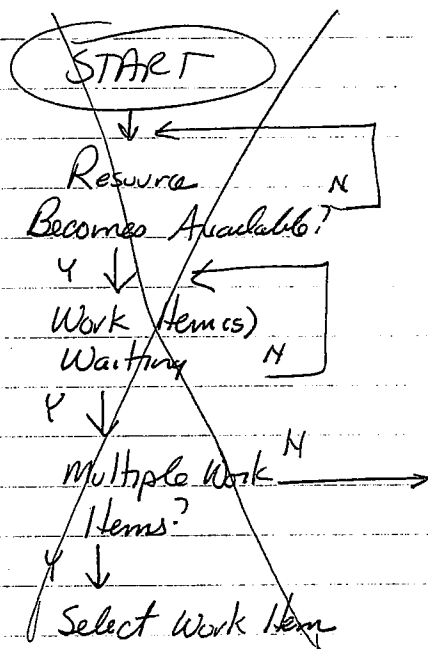 START
Resource
N
Becomes Available?
Y
Work Item(s)
Waiting
N
Y
Multiple Work
N
Items?
Y
Select Work Item